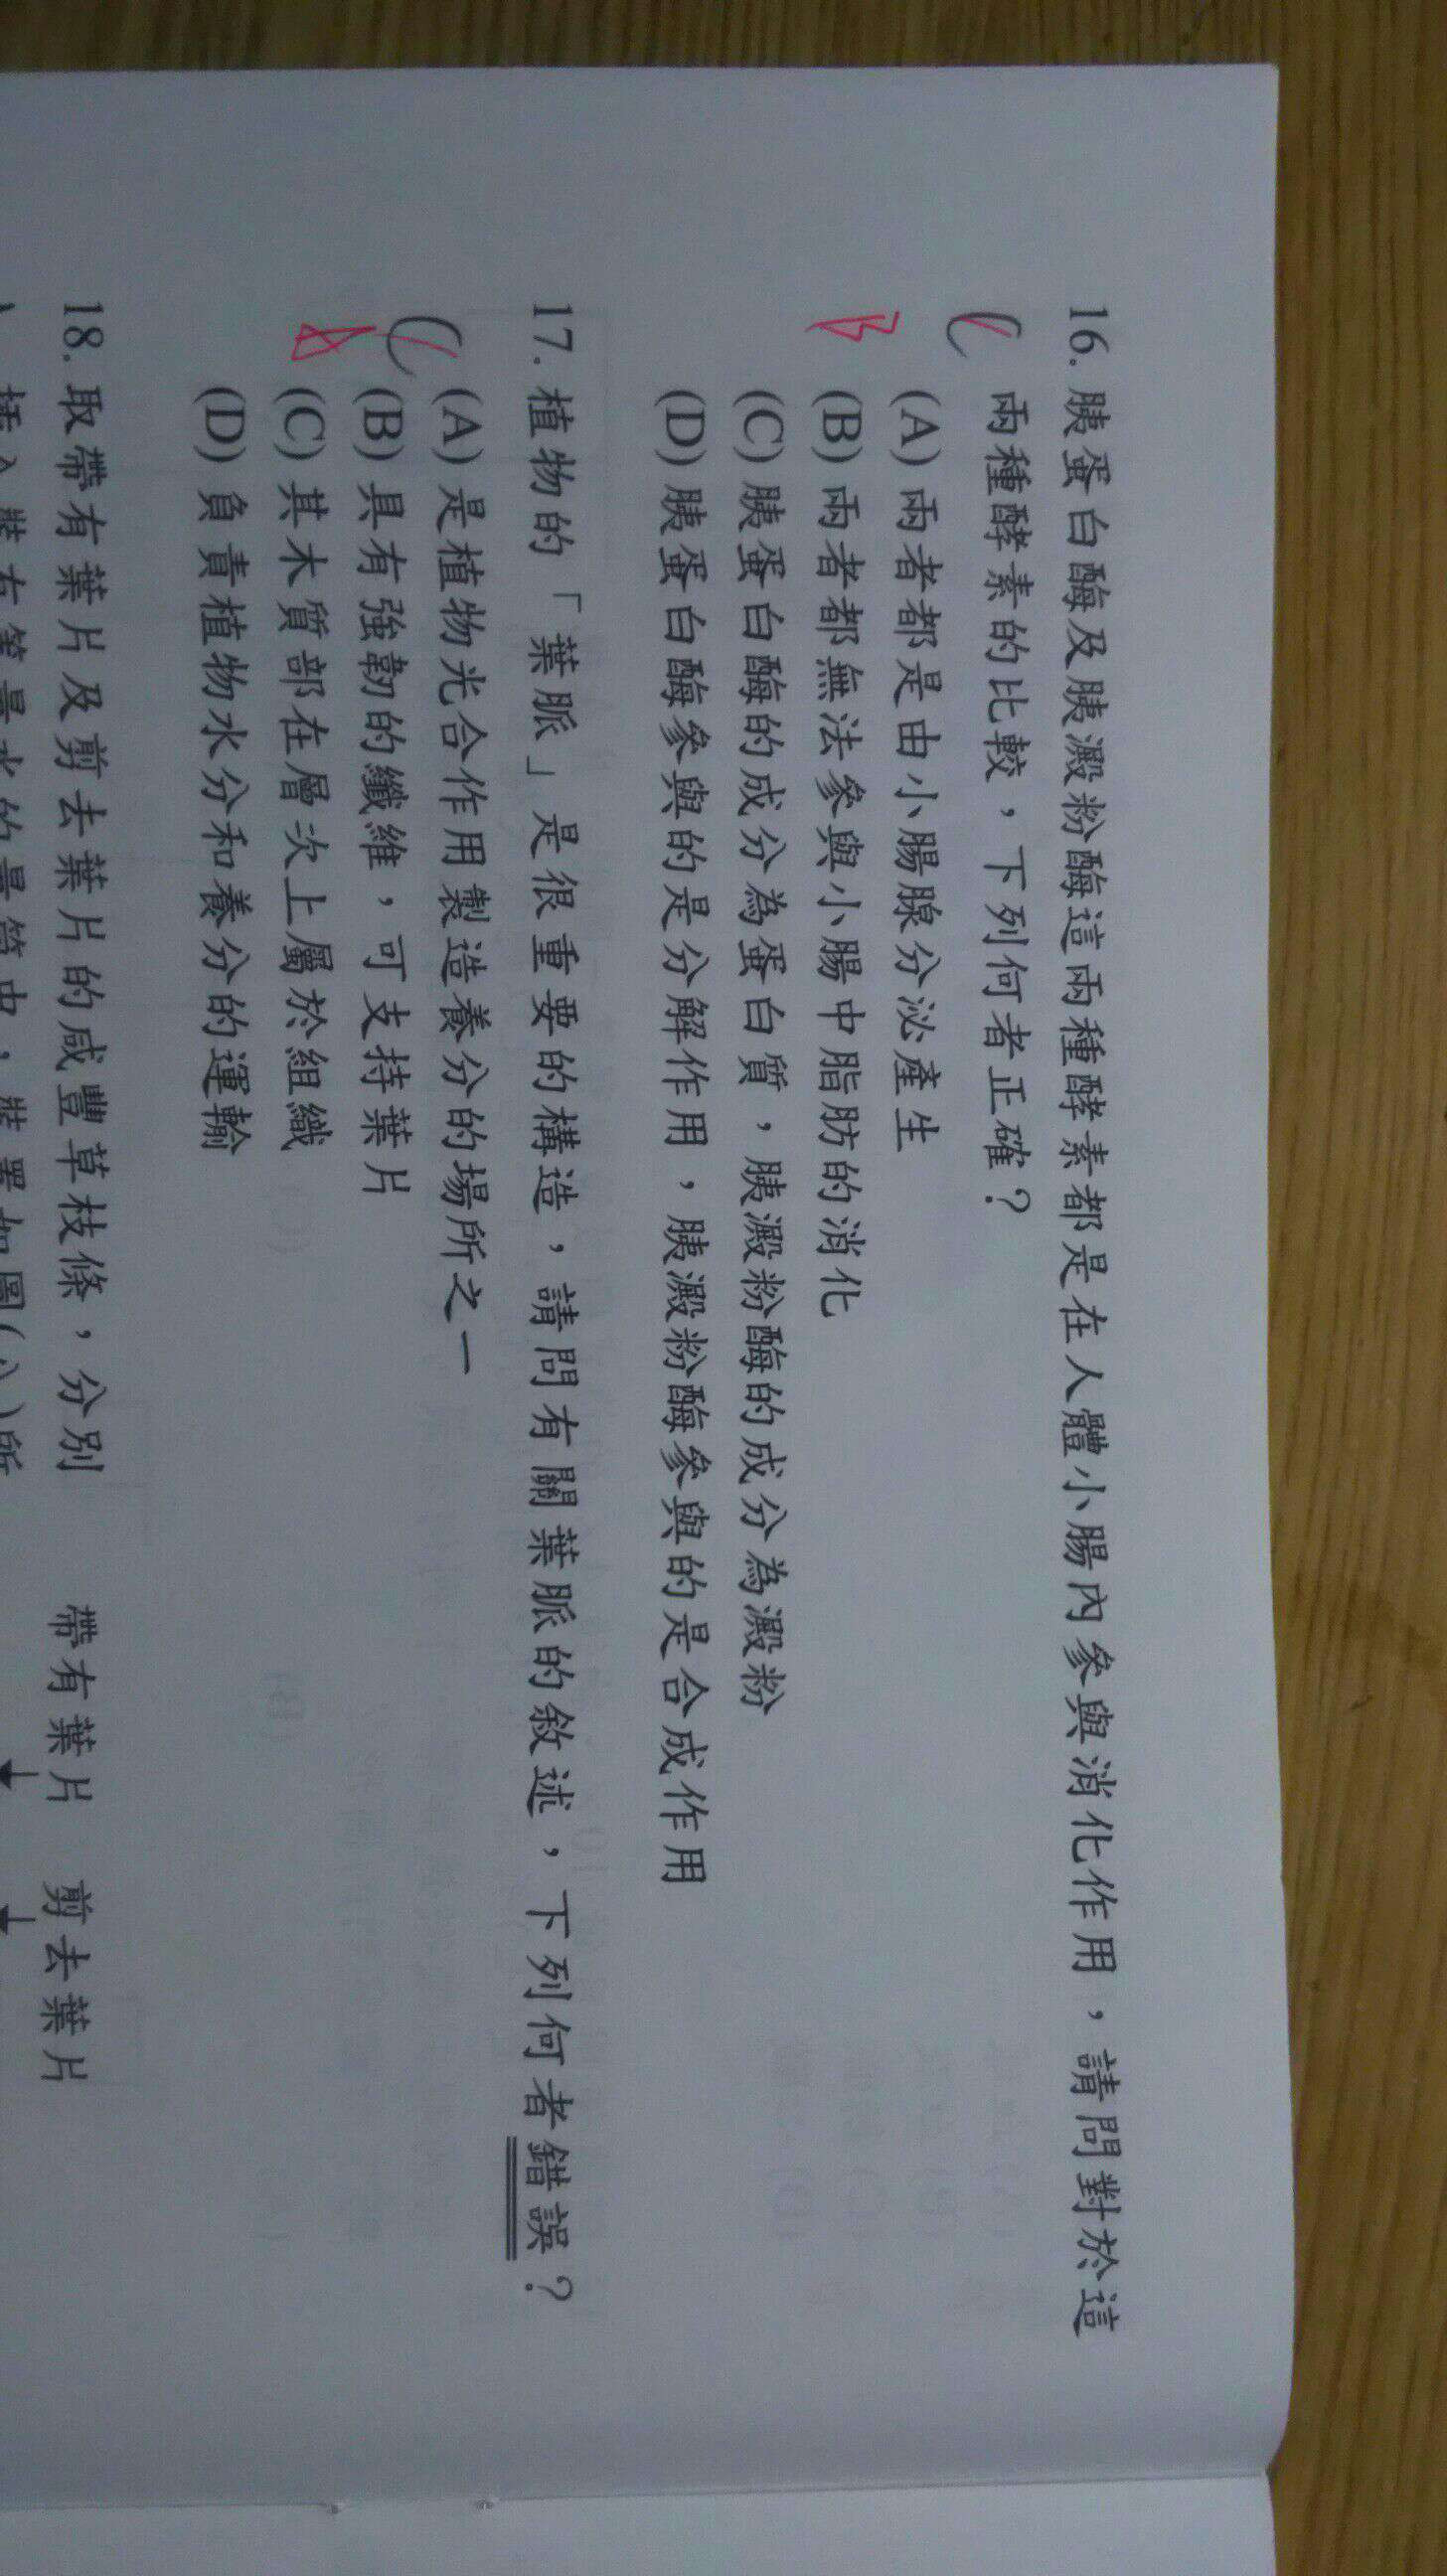 16. 胰蛋白酶及胰澱粉酶這兩種酵素都是在人體小腸內參與消化作用，請問對於這
C 兩種酵素的比較，下列何者正確？
(A) 兩者都是由小腸腺分泌產生
B (B) 兩者都無法參與小腸中脂肪的消化
(C) 胰蛋白酶的成分為蛋白質，胰澱粉酶的成分為澱粉
(D) 胰蛋白酶參與的是分解作用，胰澱粉酶參與的是合成作用
17. 植物的「葉脈」是很重要的構造，請問有關葉脈的敘述，下列何者錯誤？
C (A) 是植物光合作用製造養分的場所之一
(B) 具有強韌的纖維，可支持葉片
A (C) 其木質部在層次上屬於組織
(D) 負責植物水分和養分的運輸
18. 取帶有葉片及剪去葉片的咸豐草枝條，分別
帶有葉片 剪去葉片